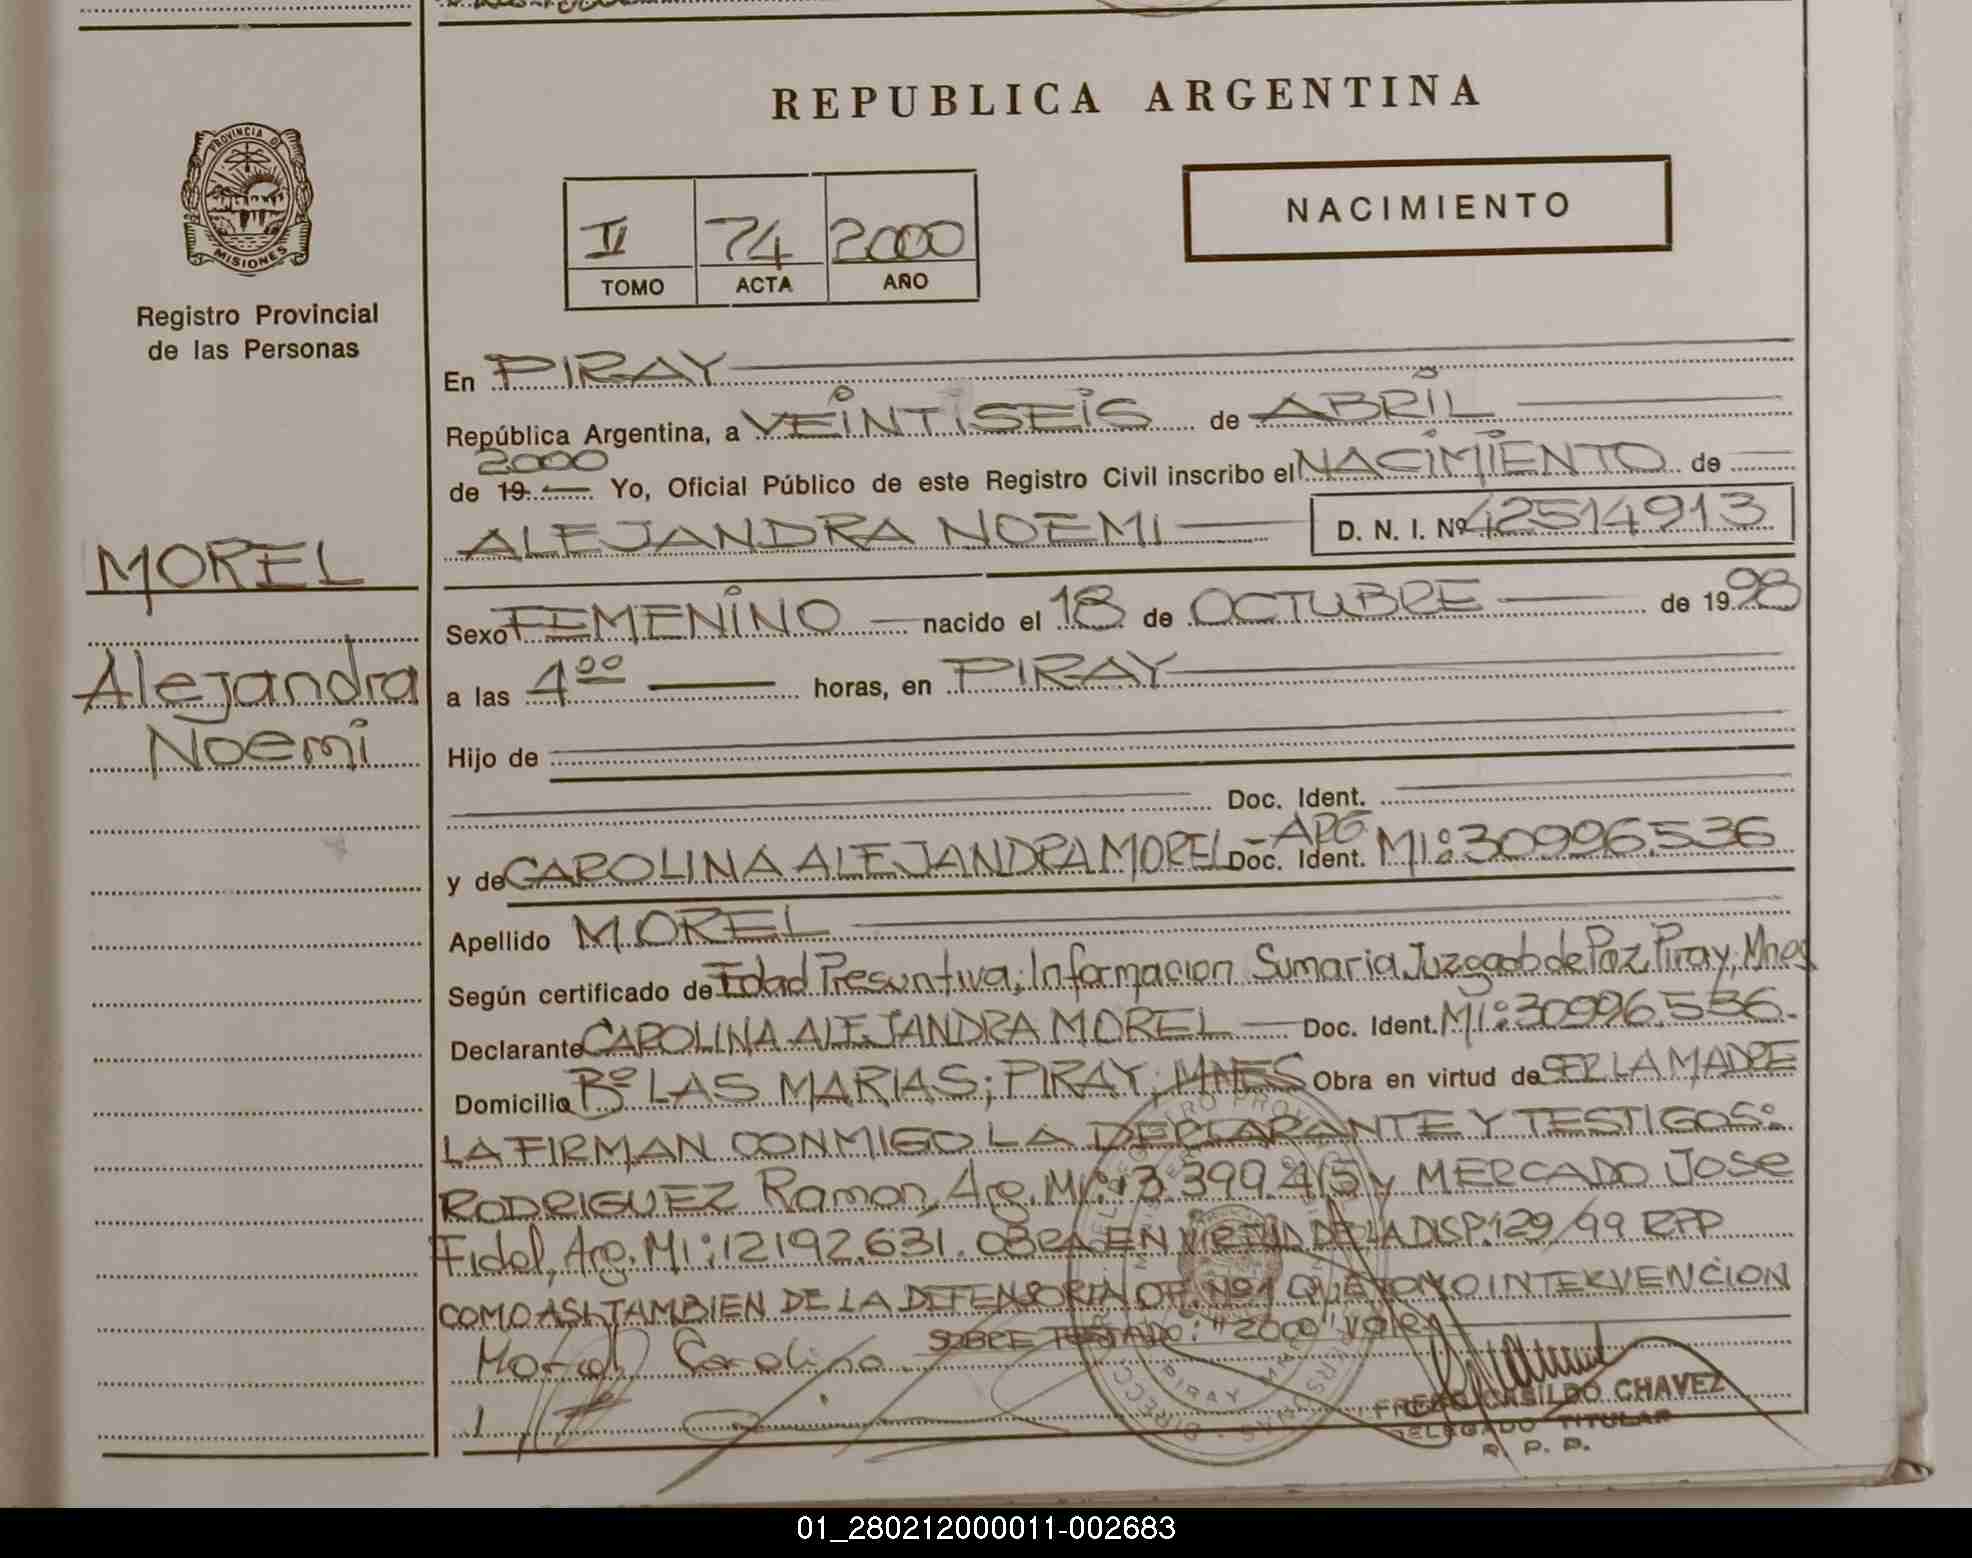 REPUBLICA ARGENTINA
PROVINCIA DE
MISIONES
Registro Provincial
de las Personas
II 74 2000
TOMO ACTA AÑO
NACIMIENTO
En PIRAY
República Argentina, a VEINTISEIS de ABRIL
2000
de 19 Yo, Oficial Público de este Registro Civil inscribo el NACIMIENTO de
ALEJANDRA NOEMI D. N. I. Nº 42514913
MOREL
Alejandra
Noemi
Sexo FEMENINO nacido el 18 de OCTUBRE de 1998
a las 4ºº horas, en PIRAY
Hijo de
Doc. Ident.
y de CAROLINA ALEJANDRA MOREL - ARG Doc. Ident. MI: 30996.536
Apellido MOREL
Según certificado de Edad Presuntiva; Informacion Sumaria Juzgado de Paz, Piray, Mnes
Declarante CAROLINA ALEJANDRA MOREL Doc. Ident. MI: 30996.536.
Domicilio Bº LAS MARIAS; PIRAY; MNES Obra en virtud de SER LA MADRE
LA FIRMAN CONMIGO LA DECLARANTE Y TESTIGOS:
RODRIGUEZ Ramon, Arg. MI: 13.399.415 y MERCADO JOSE
Fidel, Arg. MI: 12192.631. OBRA EN VIRTUD DE LA DISP. 129/99 RPP
COMO ASI TAMBIEN DE LA DEFENSORIA OF. Nº1 QUE TOMO INTERVENCION
SOBRE TESTADO: "2000" Vale
Morel Carolina
PIRAY
FREDO CASILDO CHAVEZ
DELEGADO TITULAR
R. P. P.
01_280212000011-002683